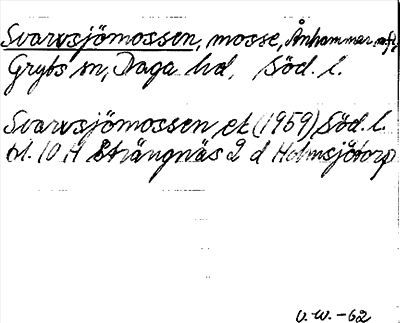 Svarvsjömossen, mosse, Ånhammar
Gryts sn, Daga hd, Söd. l.
Svarvsjömossen ek (1959) Söd. l.
bl. 10 H Strängnäs 2 d Holmsjötorp
V.W.-62